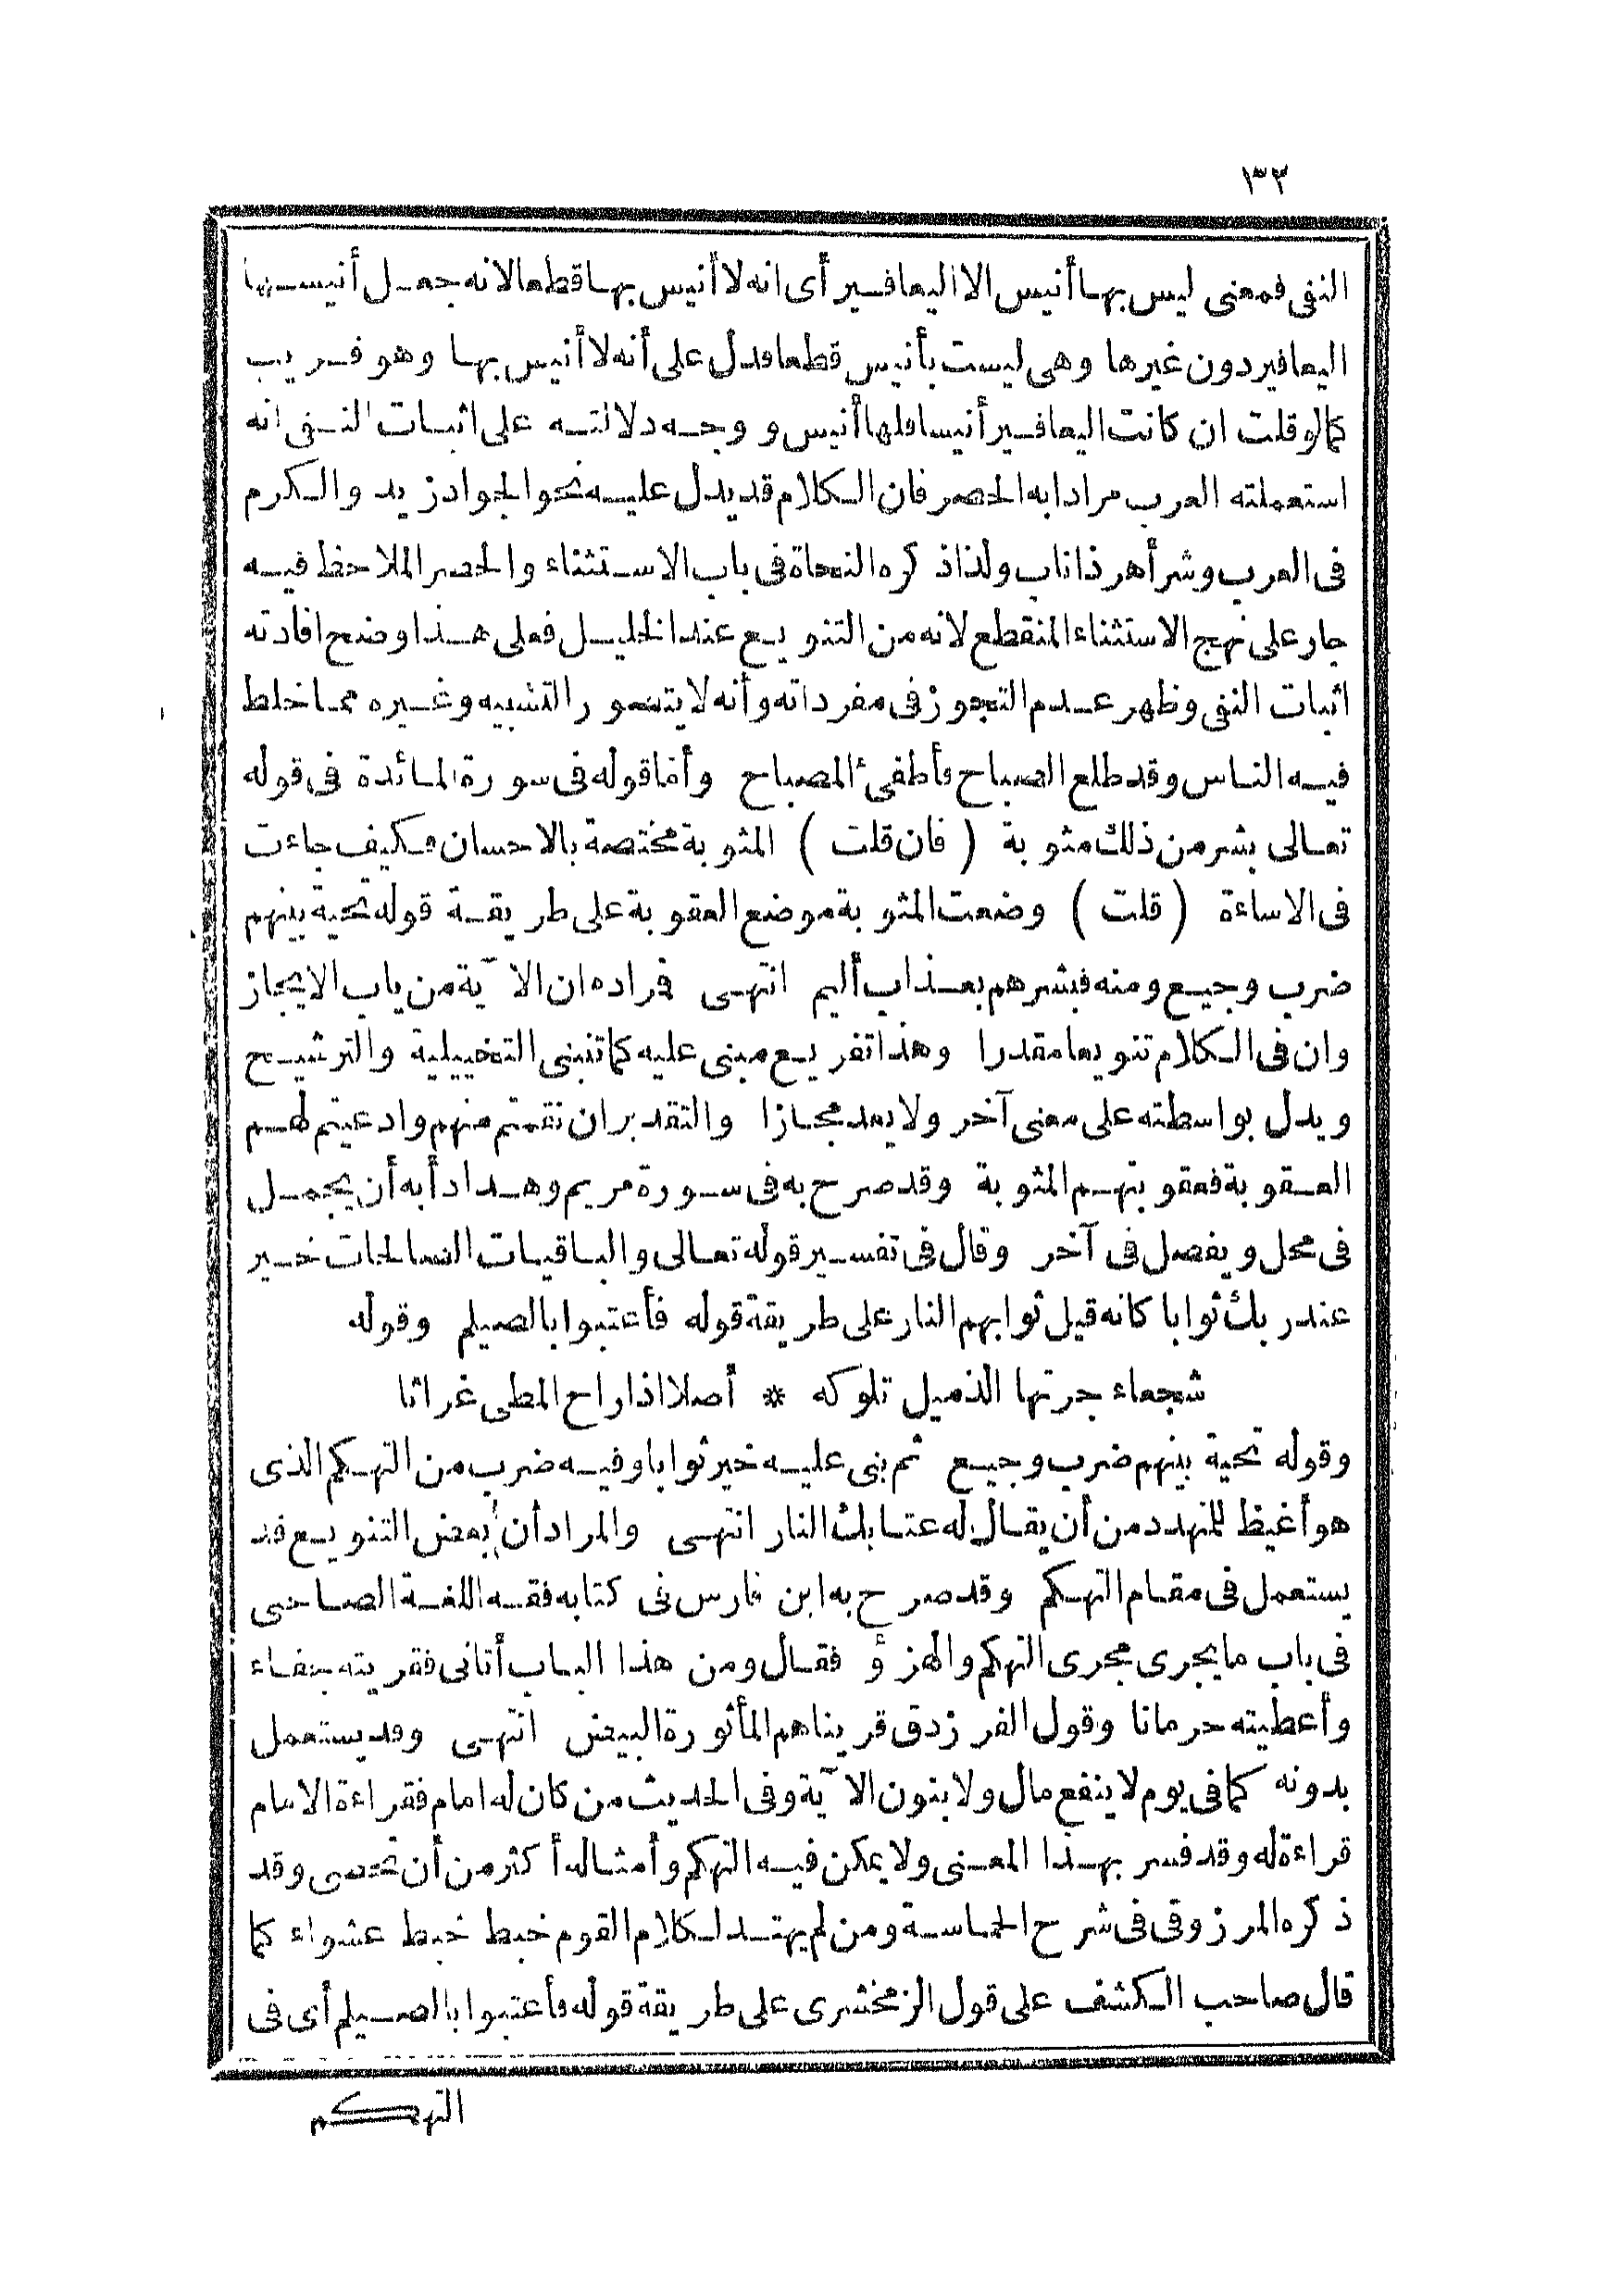 ١٣٢
النفى فمعنى ليس بها أنيس الا اليعافير أى انه لا أنيس بها قطعا لانه جعل أنيسها
اليعافير دون غيرها وهى ليست بأنيس قطعا فدل على أنه لا أنيس بها وهو قريب
كما لو قلت ان كانت اليعافير أنيسا فلها أنيس و وجه دلالته على اثبات النفى انه
استعملته العرب مرادا به الحصر فان الكلام قد يدل عليه نحو الجواد زيد والكرم
فى العرب وشر أهر ذا ناب ولذا ذكره النحاة فى باب الاستثناء والحصر الملاحظ فيه
جار على نهج الاستثناء المنقطع لانه من التنويع عند الخليل فعلى هذا وضح افادته
اثبات النفى وظهر عدم التجوز فى مفرداته وأنه لا يتصور التشبيه وغيره مما خلط
فيه الناس وقد طلع الصباح فأطفئ المصباح وأما قوله فى سورة المائدة فى قوله
تعالى بشر من ذلك مثوبة ( فان قلت ) المثوبة مختصة بالاحسان فكيف جاءت
فى الاساءة ( قلت ) وضعت المثوبة موضع العقوبة على طريقة قوله تحية بينهم
ضرب وجيع ومنه فبشرهم بعذاب أليم انتهى فراده ان الآية من باب الايجاز
وان فى الكلام تنويعا مقدرا وهذا تفريع مبنى عليه كما تنبنى التخييلية والترشيح
ويدل بواسطته على معنى آخر ولا يعد مجازا والتقدير ان نقمتم منهم وادعيتم لهم
العقوبة فعقوبتهم المثوبة وقد صرح به فى سورة مريم وهذا دأبه أن يجمل
فى محل ويفصل فى آخر وقال فى تفسير قوله تعالى والباقيات الصالحات خير
عند ربك ثوابا كانه قيل ثوابهم النار على طريقة قوله فأعتبوا بالصيلم وقوله
شجعاء جرتها الذميل تلوكه * أصلا اذا راح المطى غراثا
وقوله تحية بينهم ضرب وجيع ثم بنى عليه خير ثوابا وفيه ضرب من التهكم الذى
هو أغيظ للتهدد من أن يقال له عتابك النار انتهى والمراد أن بعض التنويع قد
يستعمل فى مقام التهكم وقد صرح به ابن فارس فى كتابه فقه اللغة الصاحبى
فى باب ما يجرى مجرى التهكم والهزؤ فقال ومن هذا الباب أتانى فقريته جفاء
وأعطيته حرمانا وقول الفرزدق قريناهم المأثورة البيض انتهى وقد يستعمل
بدونه كما فى يوم لا ينفع مال ولا بنون الآية وفى الحديث من كان له امام فقراءة الامام
قراءة له وقد فسر بهذا المعنى ولا يمكن فيه التهكم وأمثاله أكثر من أن تحصى وقد
ذكره المرزوقى فى شرح الحماسة ومن لم يهتد لكلام القوم خبط خبط عشواء كما
قال صاحب الكشف على قول الزمخشرى على طريقة قوله فأعتبوا بالصيلم أى فى
التهكم